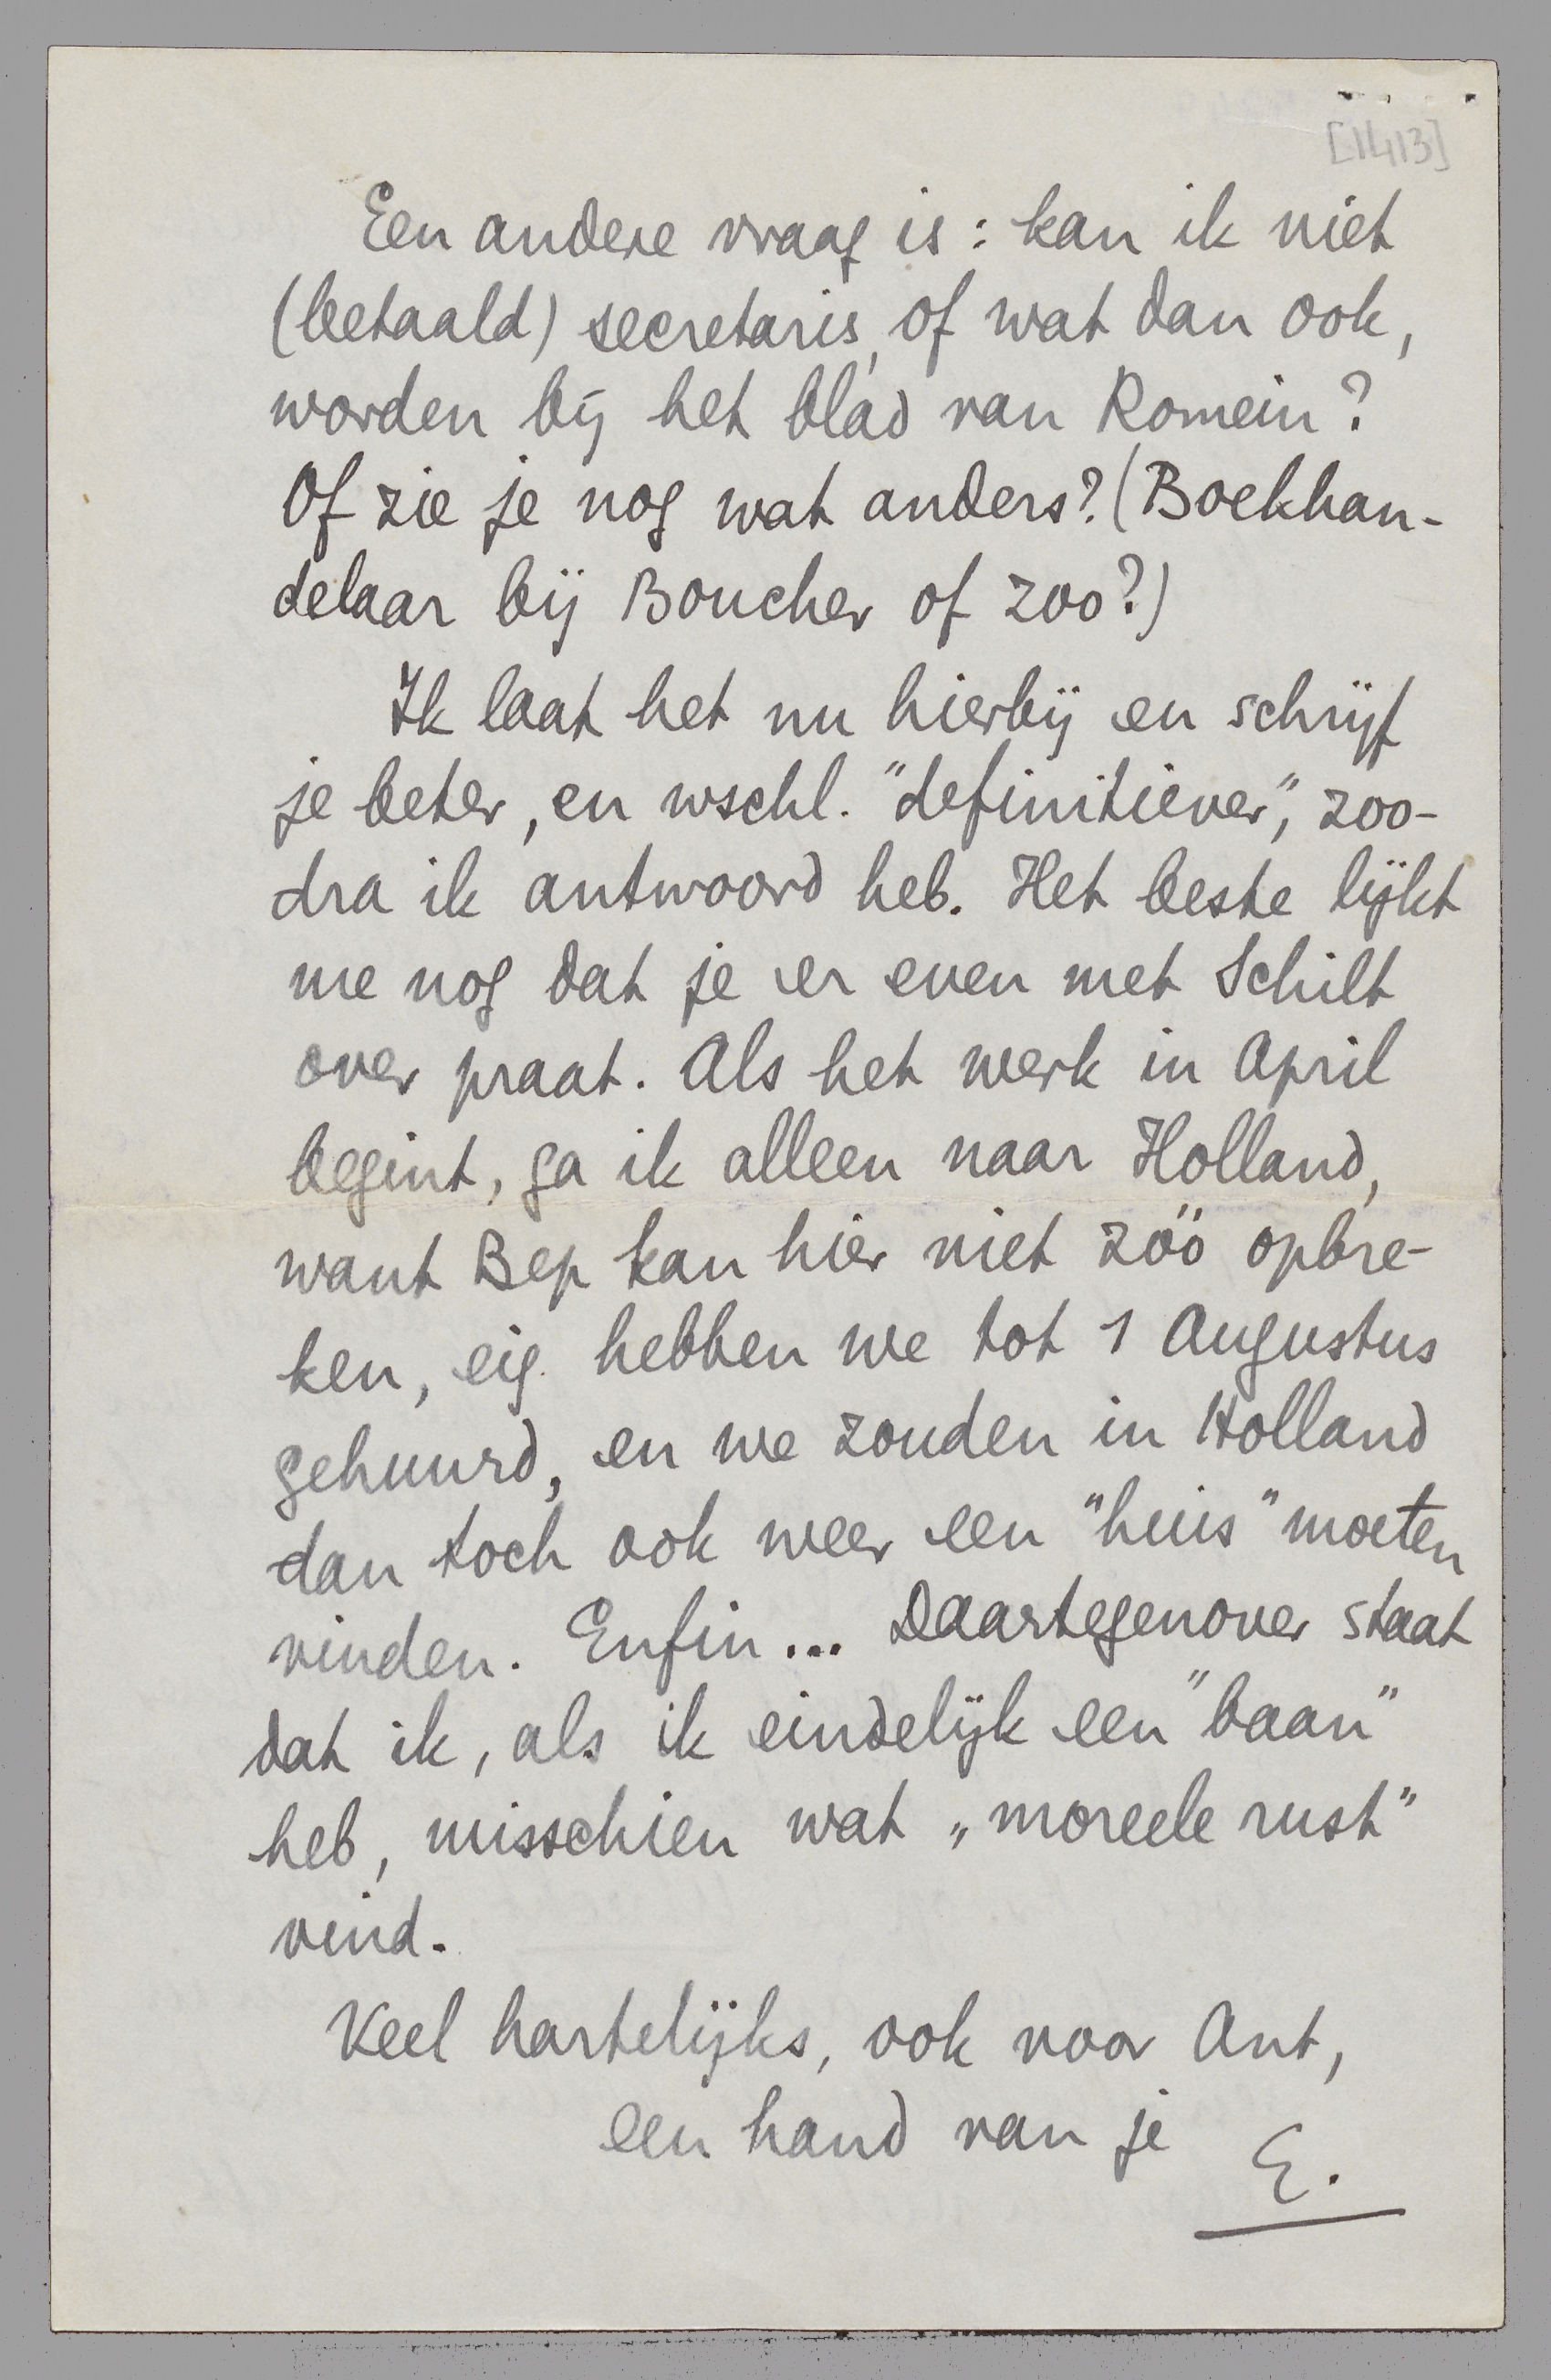 [1413]
Een andere vraag is : kan ik niet
(betaald) secretaris, of wat dan ook,
worden bij het blad van Romein?
Of zie je nog wat anders? (Boekhan-
delaar bij Boucher of zoo?)
Ik laat het nu hierbij en schrijf
je beter, en wschl. "definitiever", zoo-
dra ik antwoord heb. Het beste lijkt
me nog dat je er even met Schilt
over praat. Als het werk in April
begint, ga ik alleen naar Holland,
want Bep kan hier niet zóó opbre-
ken, eig. hebben we tot 1 Augustus
gehuurd, en we zouden in Holland
dan toch ook weer een "huis" moeten
vinden. Enfin... Daartegenover staat
dat ik, als ik eindelijk een "baan"
heb, misschien wat „moreele rust"
vind.
Veel hartelijks, ook voor Ant,
een hand van je
E.